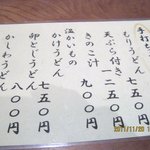 手打ち
もりうどん 七五〇円
天ぷら付き 一二五〇円
きのこ汁 九〇〇円
温かいもの
かけうどん 七五〇円
卵とじうどん
かしわうどん 八〇〇円
2011/11/20